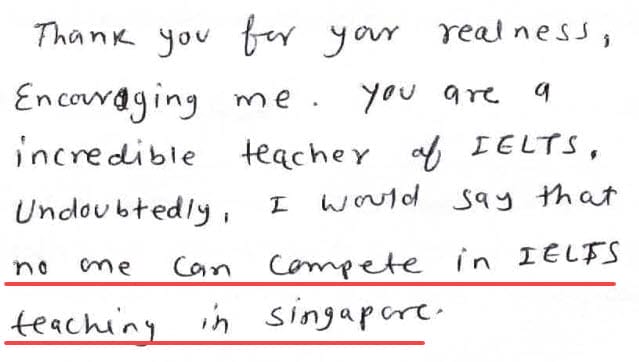 Thank you for your realness,
Encouraging me. You are a
incredible teacher of IELTS.
Undoubtedly, I would say that
no one can compete in IELTS
teaching in singapore.